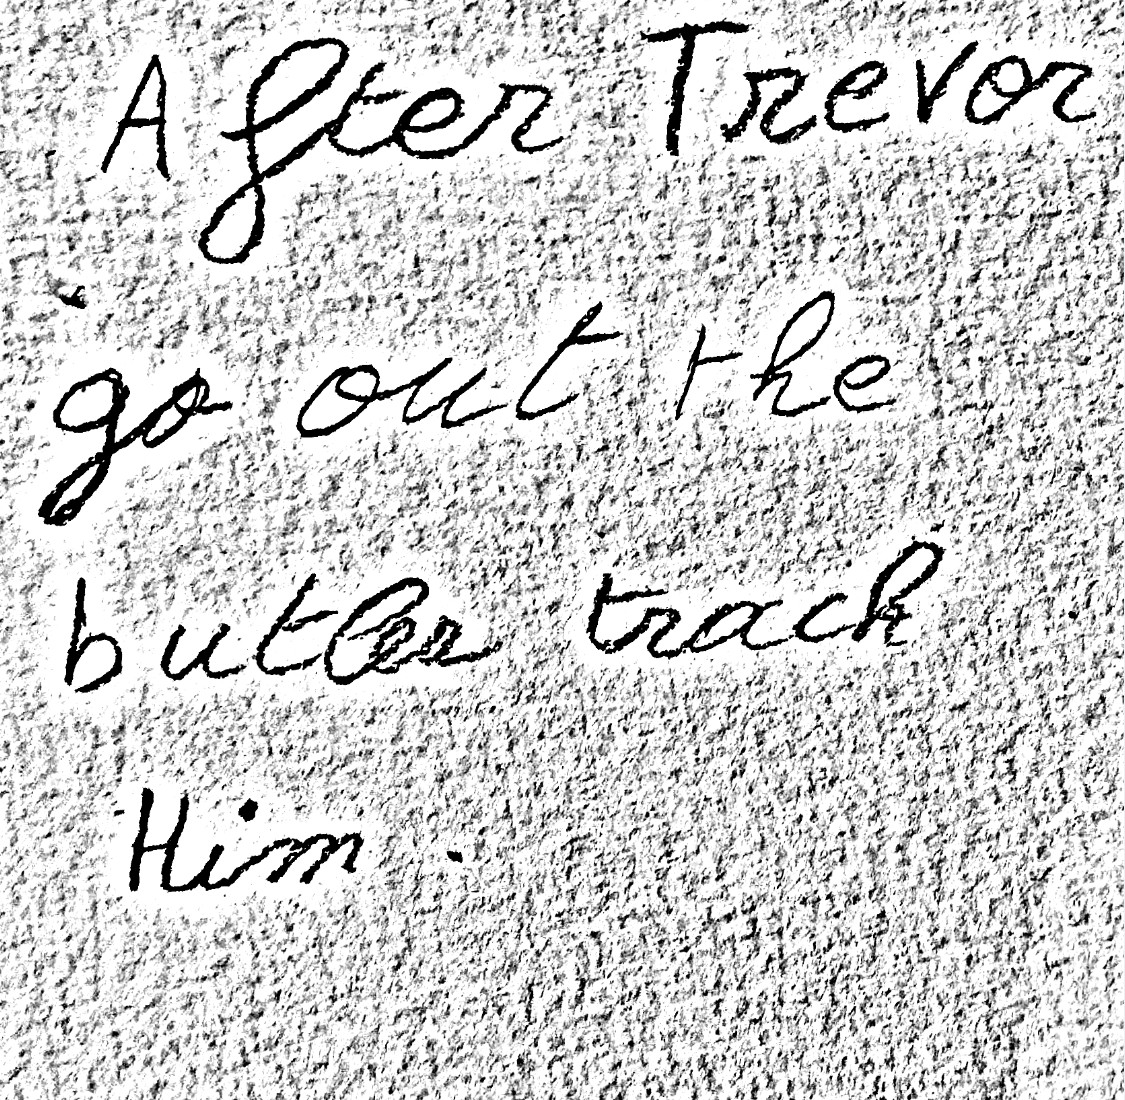 After Trevor
go out the
butler track
Him.